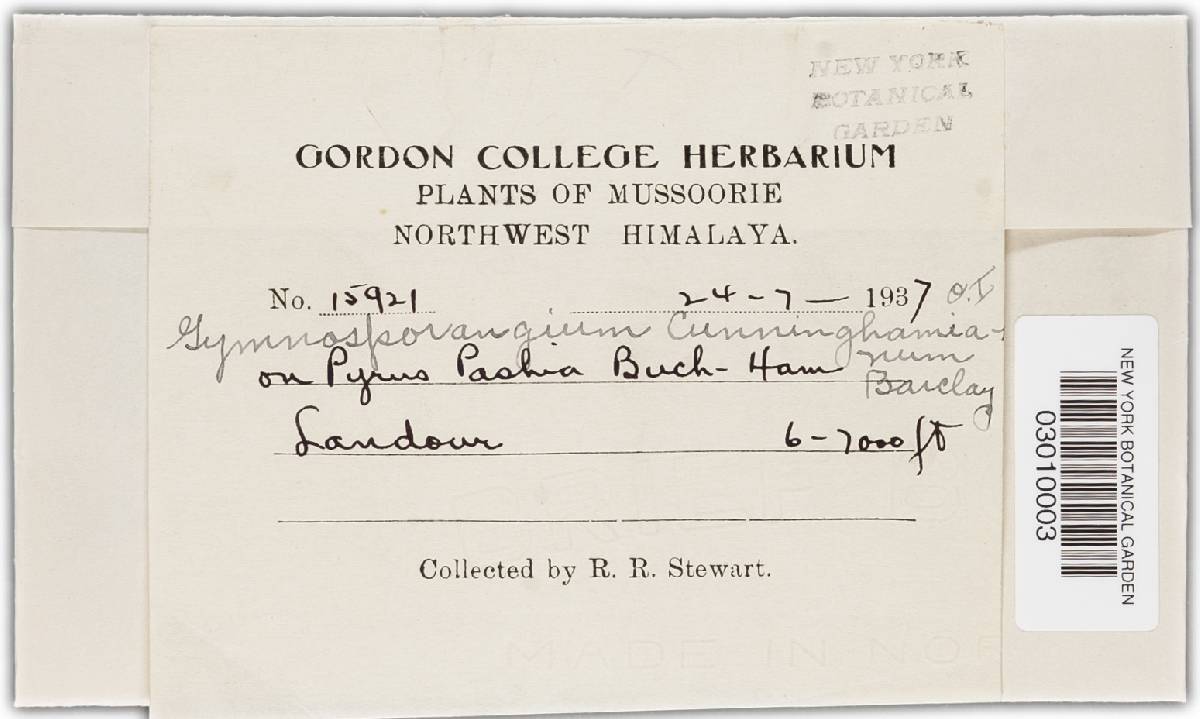 NEW YORK
BOTANICAL
GARDEN
GORDON COLLEGE HERBARIUM
PLANTS OF MUSSOORIE
NORTHWEST HIMALAYA.
No. 15921 24-7- 1937 O.I
Gymnosporangium Cunninghamia-
num
on Pyrus Pashia Buch-Ham
Barclay
Landour 6-7000 ft
Collected by R. R. Stewart.
MADE IN NOR
NEW YORK BOTANICAL GARDEN
03010003